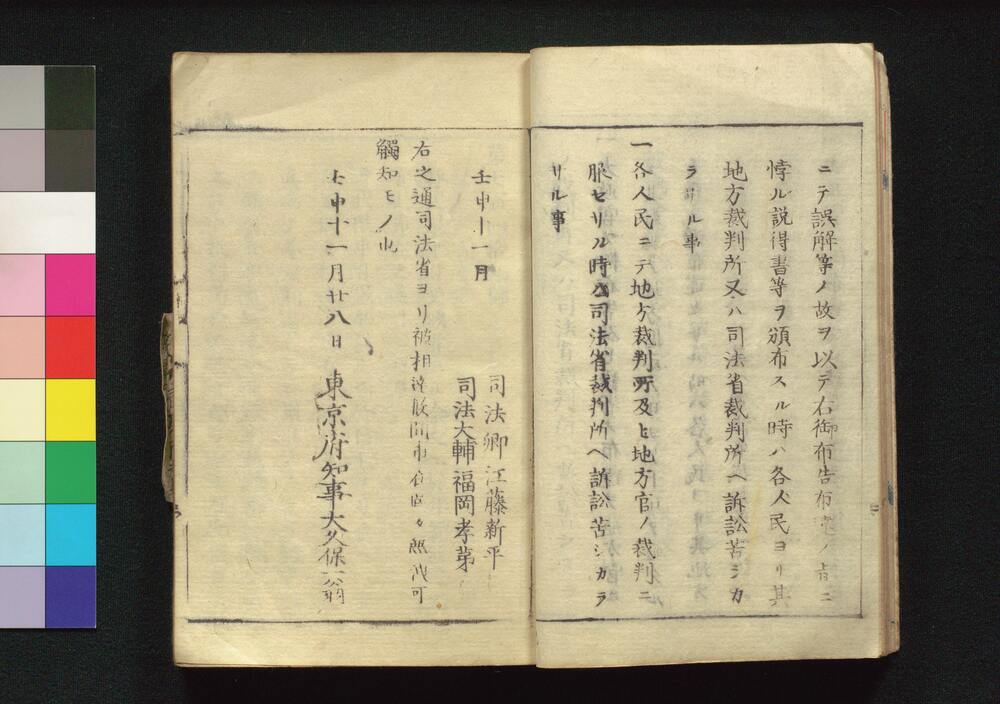 ニテ誤解等ノ故ヲ以テ右御布告布達ノ旨ニ
悖ル説得書等ヲ頒布スル時ハ各人民ヨリ其
地方裁判所又ハ司法省裁判所ヘ訴訟苦シカ
ラサル事
一各人民ニテ地方裁判所及ヒ地方官ノ裁判ニ
服セサル時ハ司法省裁判所ヘ訴訟苦シカラ
サル事
壬申十一月
司法卿江藤新平
司法大輔福岡孝苐
右之通司法省ヨリ被相達候間市在區々無洩可
觸知モノ也
壬申十一月廿八日
東京府知事大久保一翁